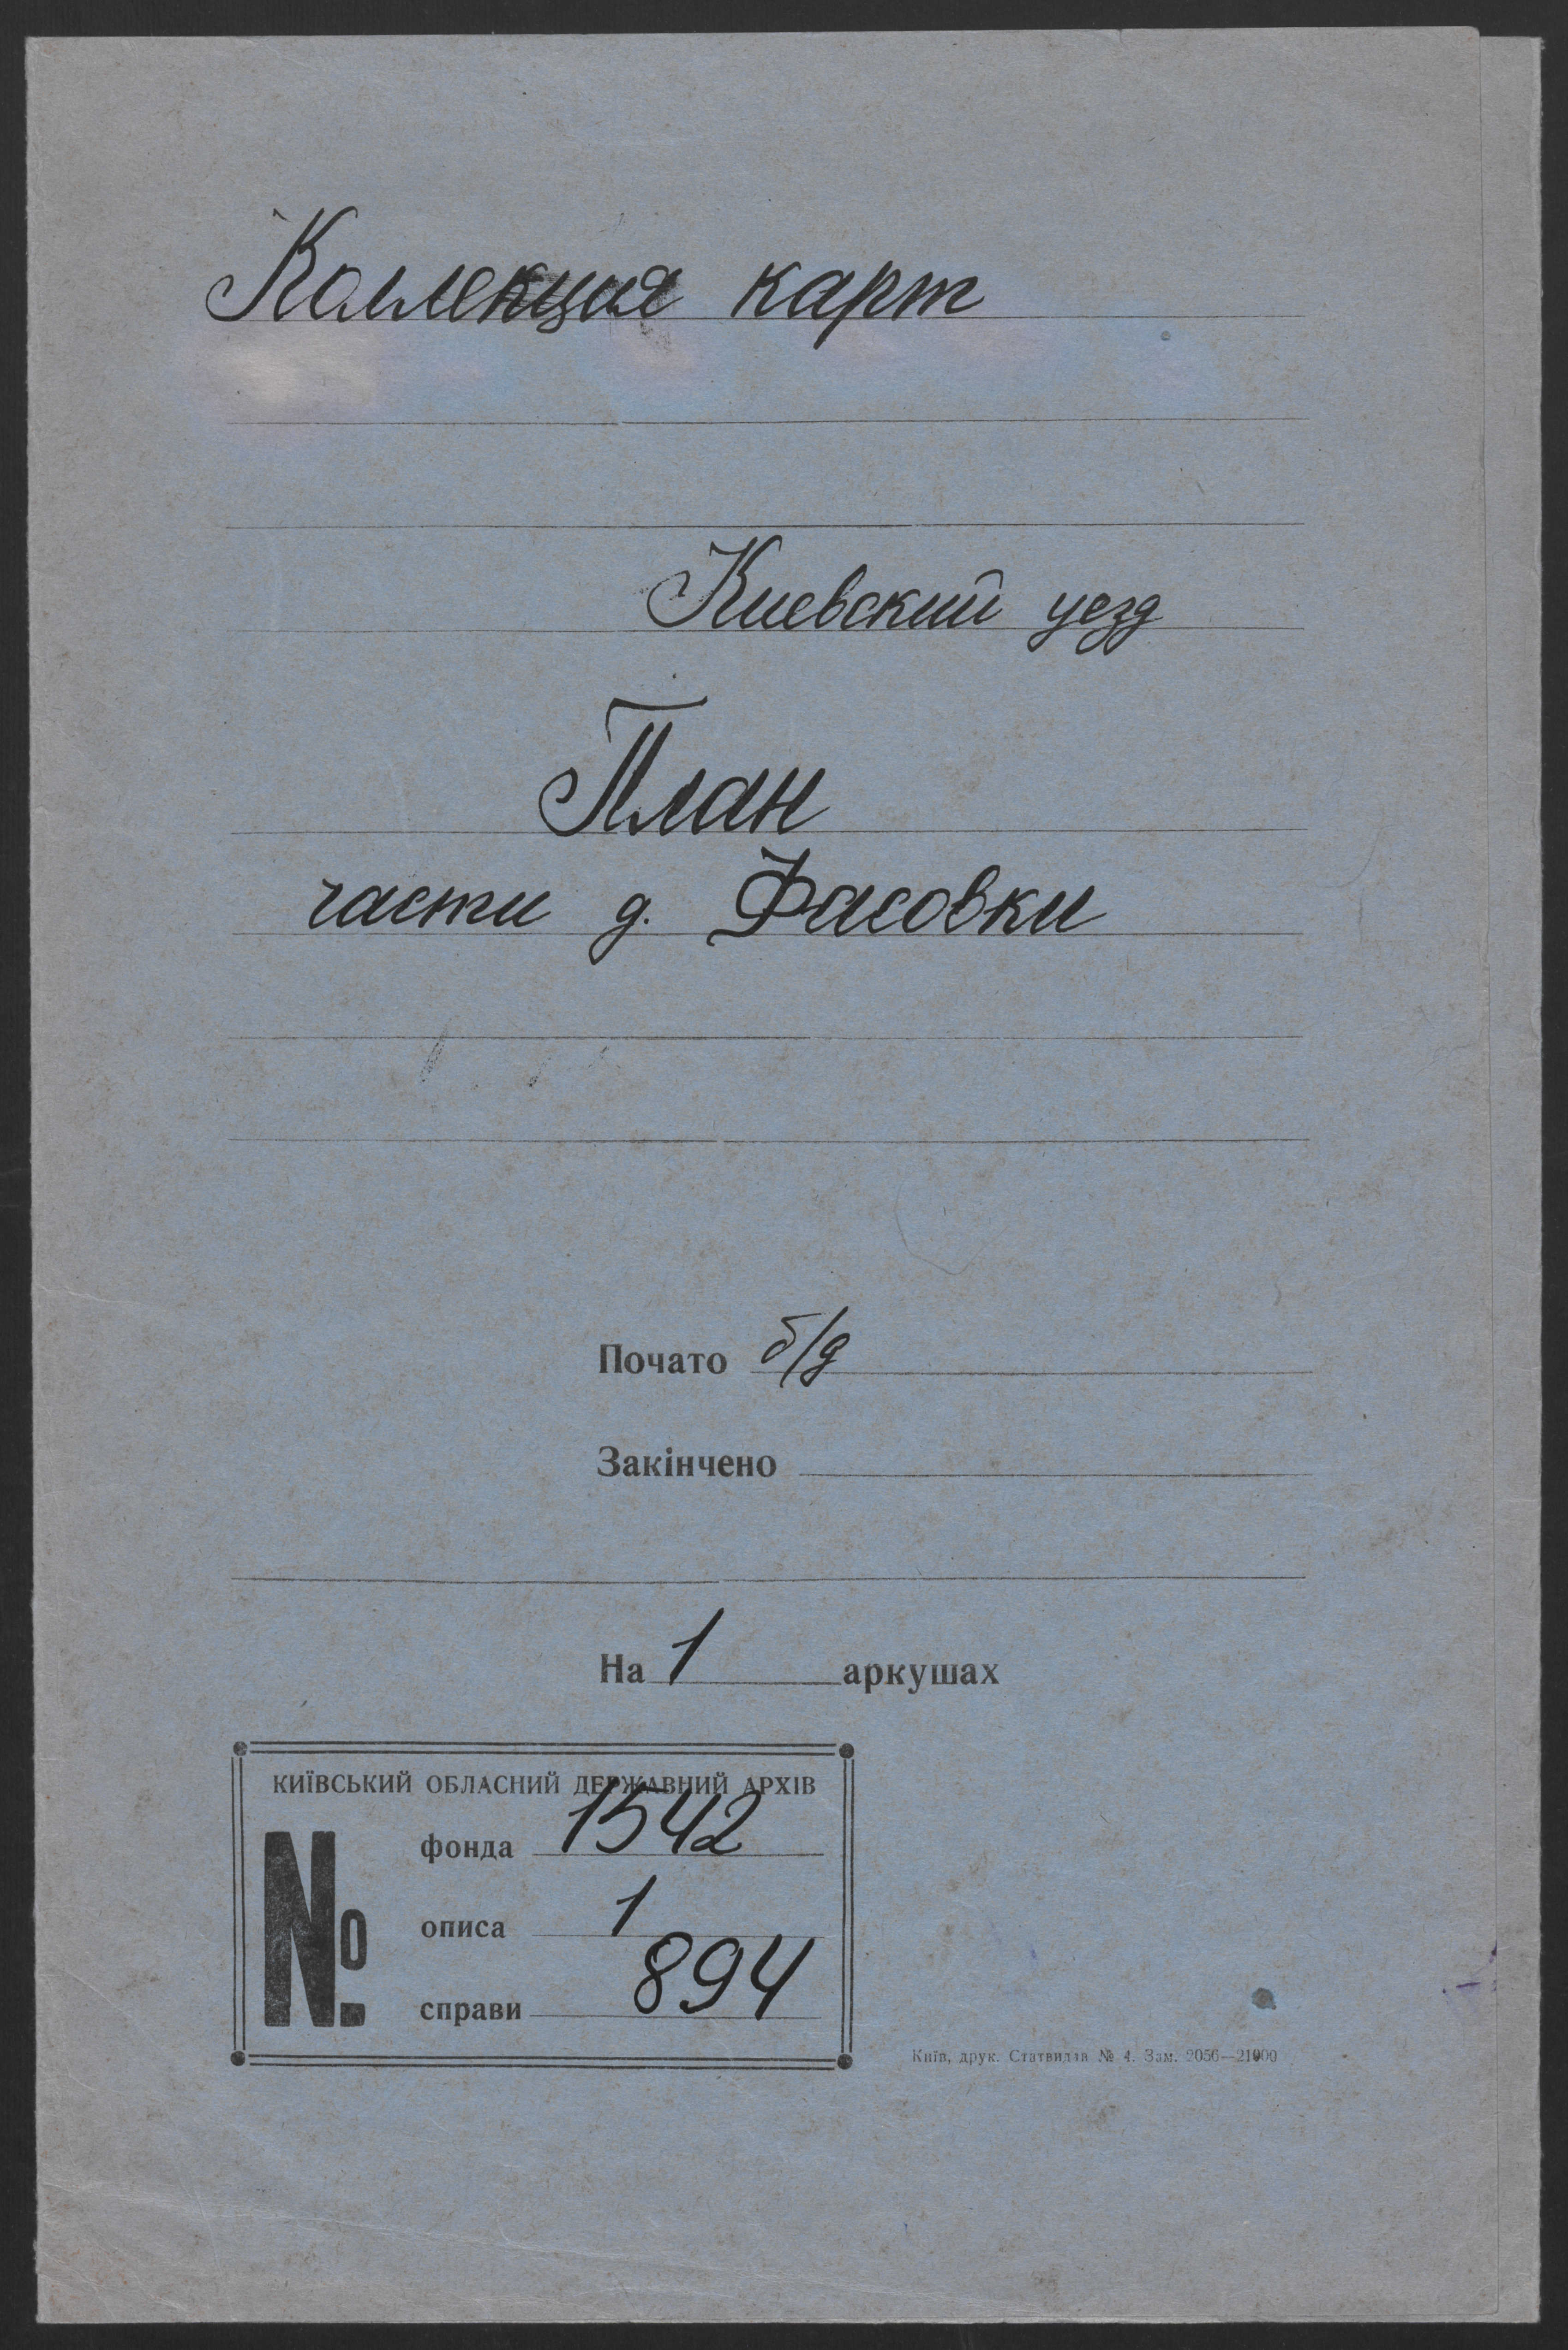 Коллекция карт
Киевский уезд
План
части д. Фасовки
Почато б/д
Закінчено
На 1 аркушах
КИЇВСЬКИЙ ОБЛАСНИЙ ДЕРЖАВНИЙ АРХІВ
№
фонда 1542
описа 1
справи 894
Київ, друк. Статвидав № 4. Зам. 2056—21000